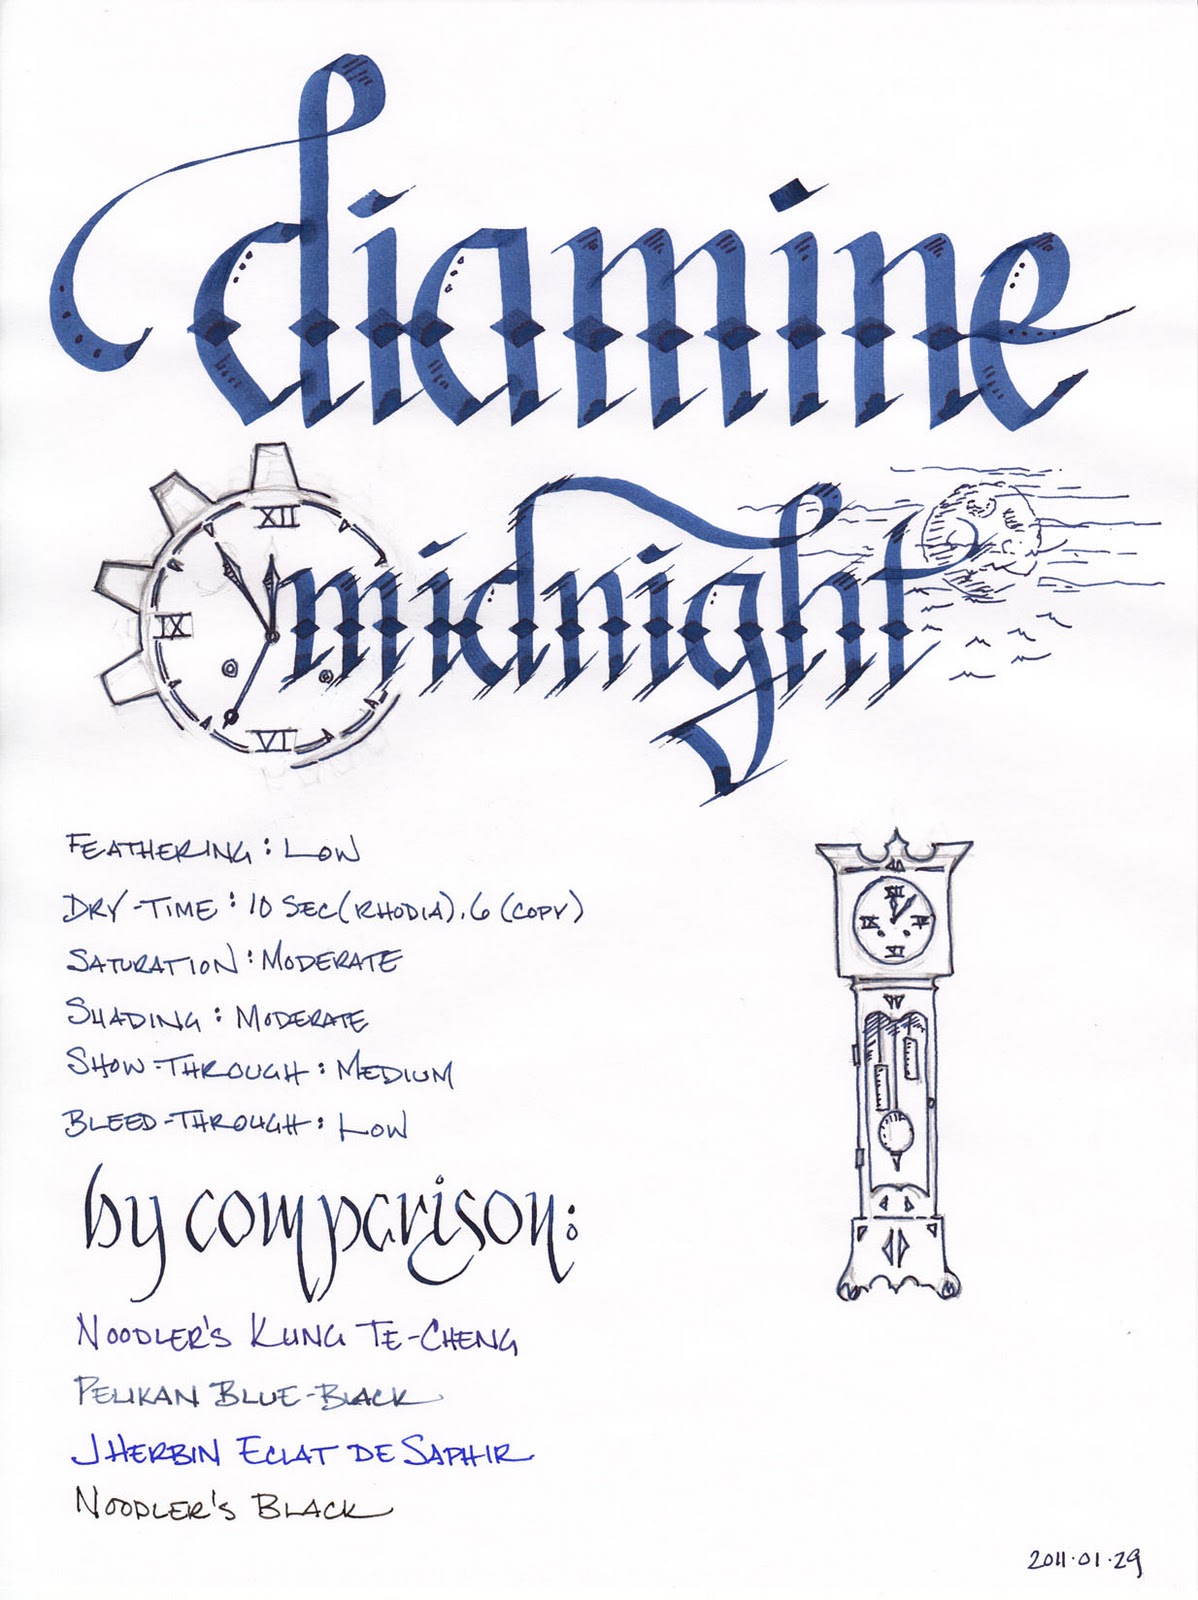 diamine
XII
midnight
IX
VI
FEATHERING: LOW
DRY-TIME: 10 SEC(RHODIA), 6 (COPY)
SATURATION: MODERATE
SHADING: MODERATE
SHOW-THROUGH: MEDIUM
BLEED-THROUGH: LOW
XII
IX
VI
by comparison:
NOODLER'S KUNG TE-CHENG
PELIKAN BLUE-BLACK
J HERBIN ECLAT DE SAPHIR
NOODLER'S BLACK
2011.01.29